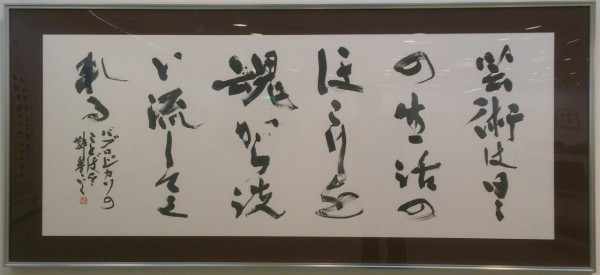 芸術は日々
の生活の
ほこりを
魂から洗
い流してく
れる
パブロ・ピカソの
ことばを